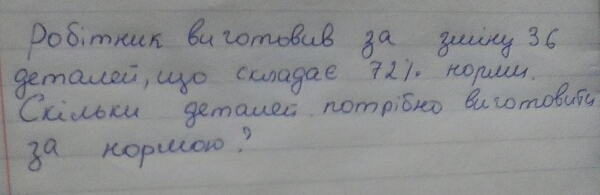 Робітник виготовив за зміну 36
деталей, що складає 72% норми.
Скільки деталей потрібно виготовити
за нормою?